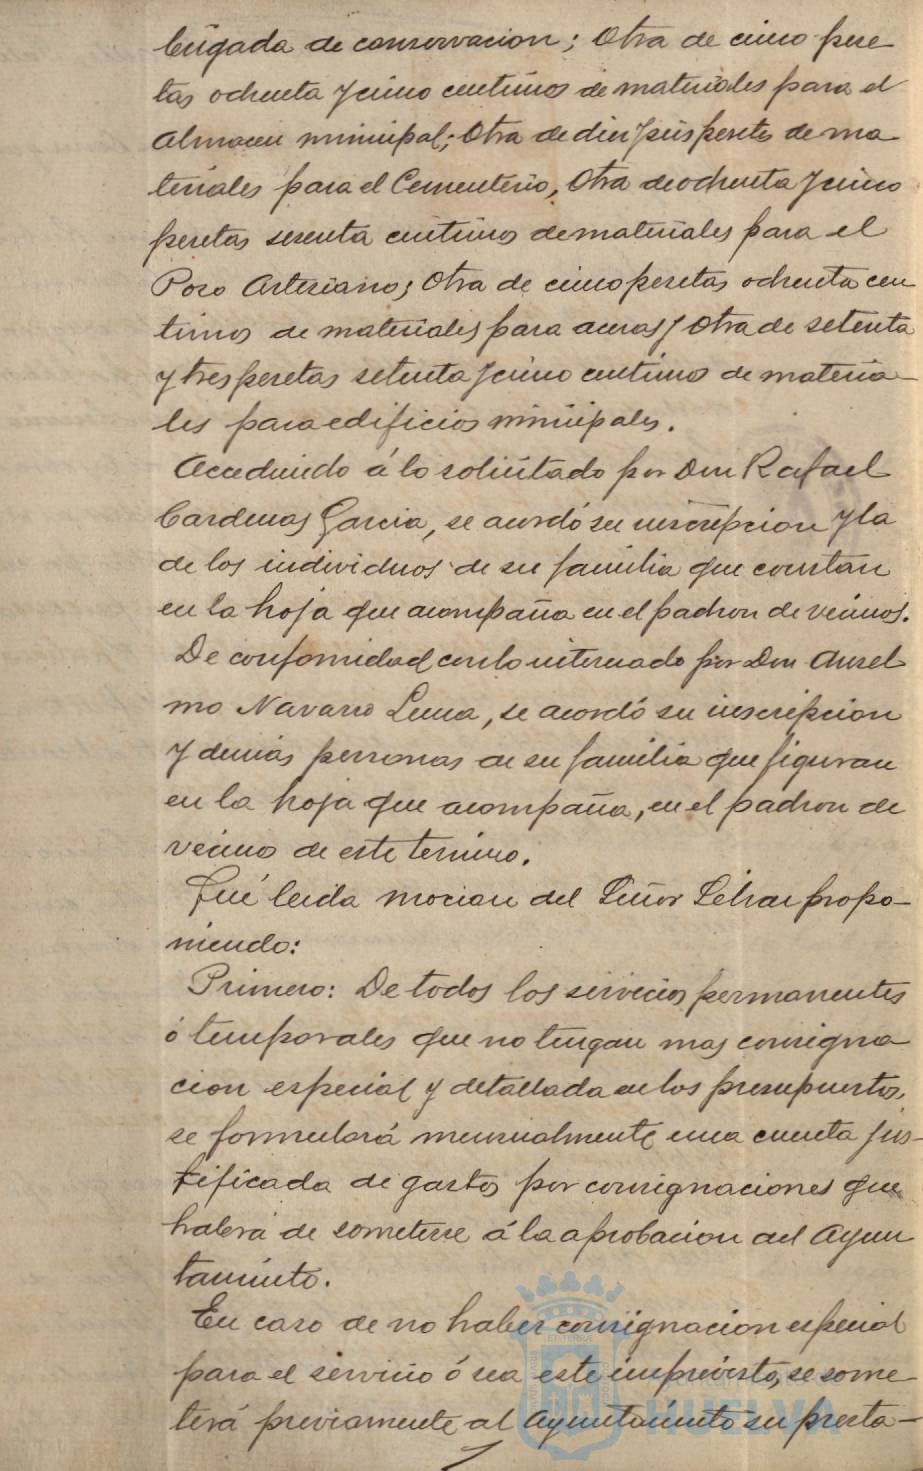 brigada de conservacion; Otra de cinco pese
tas ochenta y cinco centimos de materiales para el
Almacen municipal; Otra de diez y seis pesetas de ma
teriales para el Cementerio, Otra de ochenta y cinco
pesetas sesenta centimos de materiales para el
Pozo Artesiano; Otra de cinco pesetas ochenta cen
timos de materiales para aceras y Otra de setenta
y tres pesetas setenta y cinco centimos de materia-
les para edificios municipales.
Accediendo á lo solicitado por Don Rafael
Cardenas Garcia, se acordó su inscripcion y la
de los individuos de su familia que constan
en la hoja que acompaña en el padron de vecinos.
De conformidad con lo interesado por Don Ansel
mo Navarro Luna, se acordó su inscripcion
y demás personas de su familia que figuran
en la hoja que acompaña, en el padron de
vecinos de este termino.
Fué leida mocion del Señor propo-
niendo:
Primero: De todos los servicios permanentes
ó temporales que no tengan mas consigna
cion especial y detallada en los presupuestos,
se formulará mensualmente una cuenta jus-
tificada de gastos por consignaciones que
habrá de someterse á la aprobacion del Ayun
tamiento.
En caso de no haber consignacion especial
para el servicio ó sea este imprevisto, se some-
terá previamente al Ayuntamiento su presta-
HUELVA